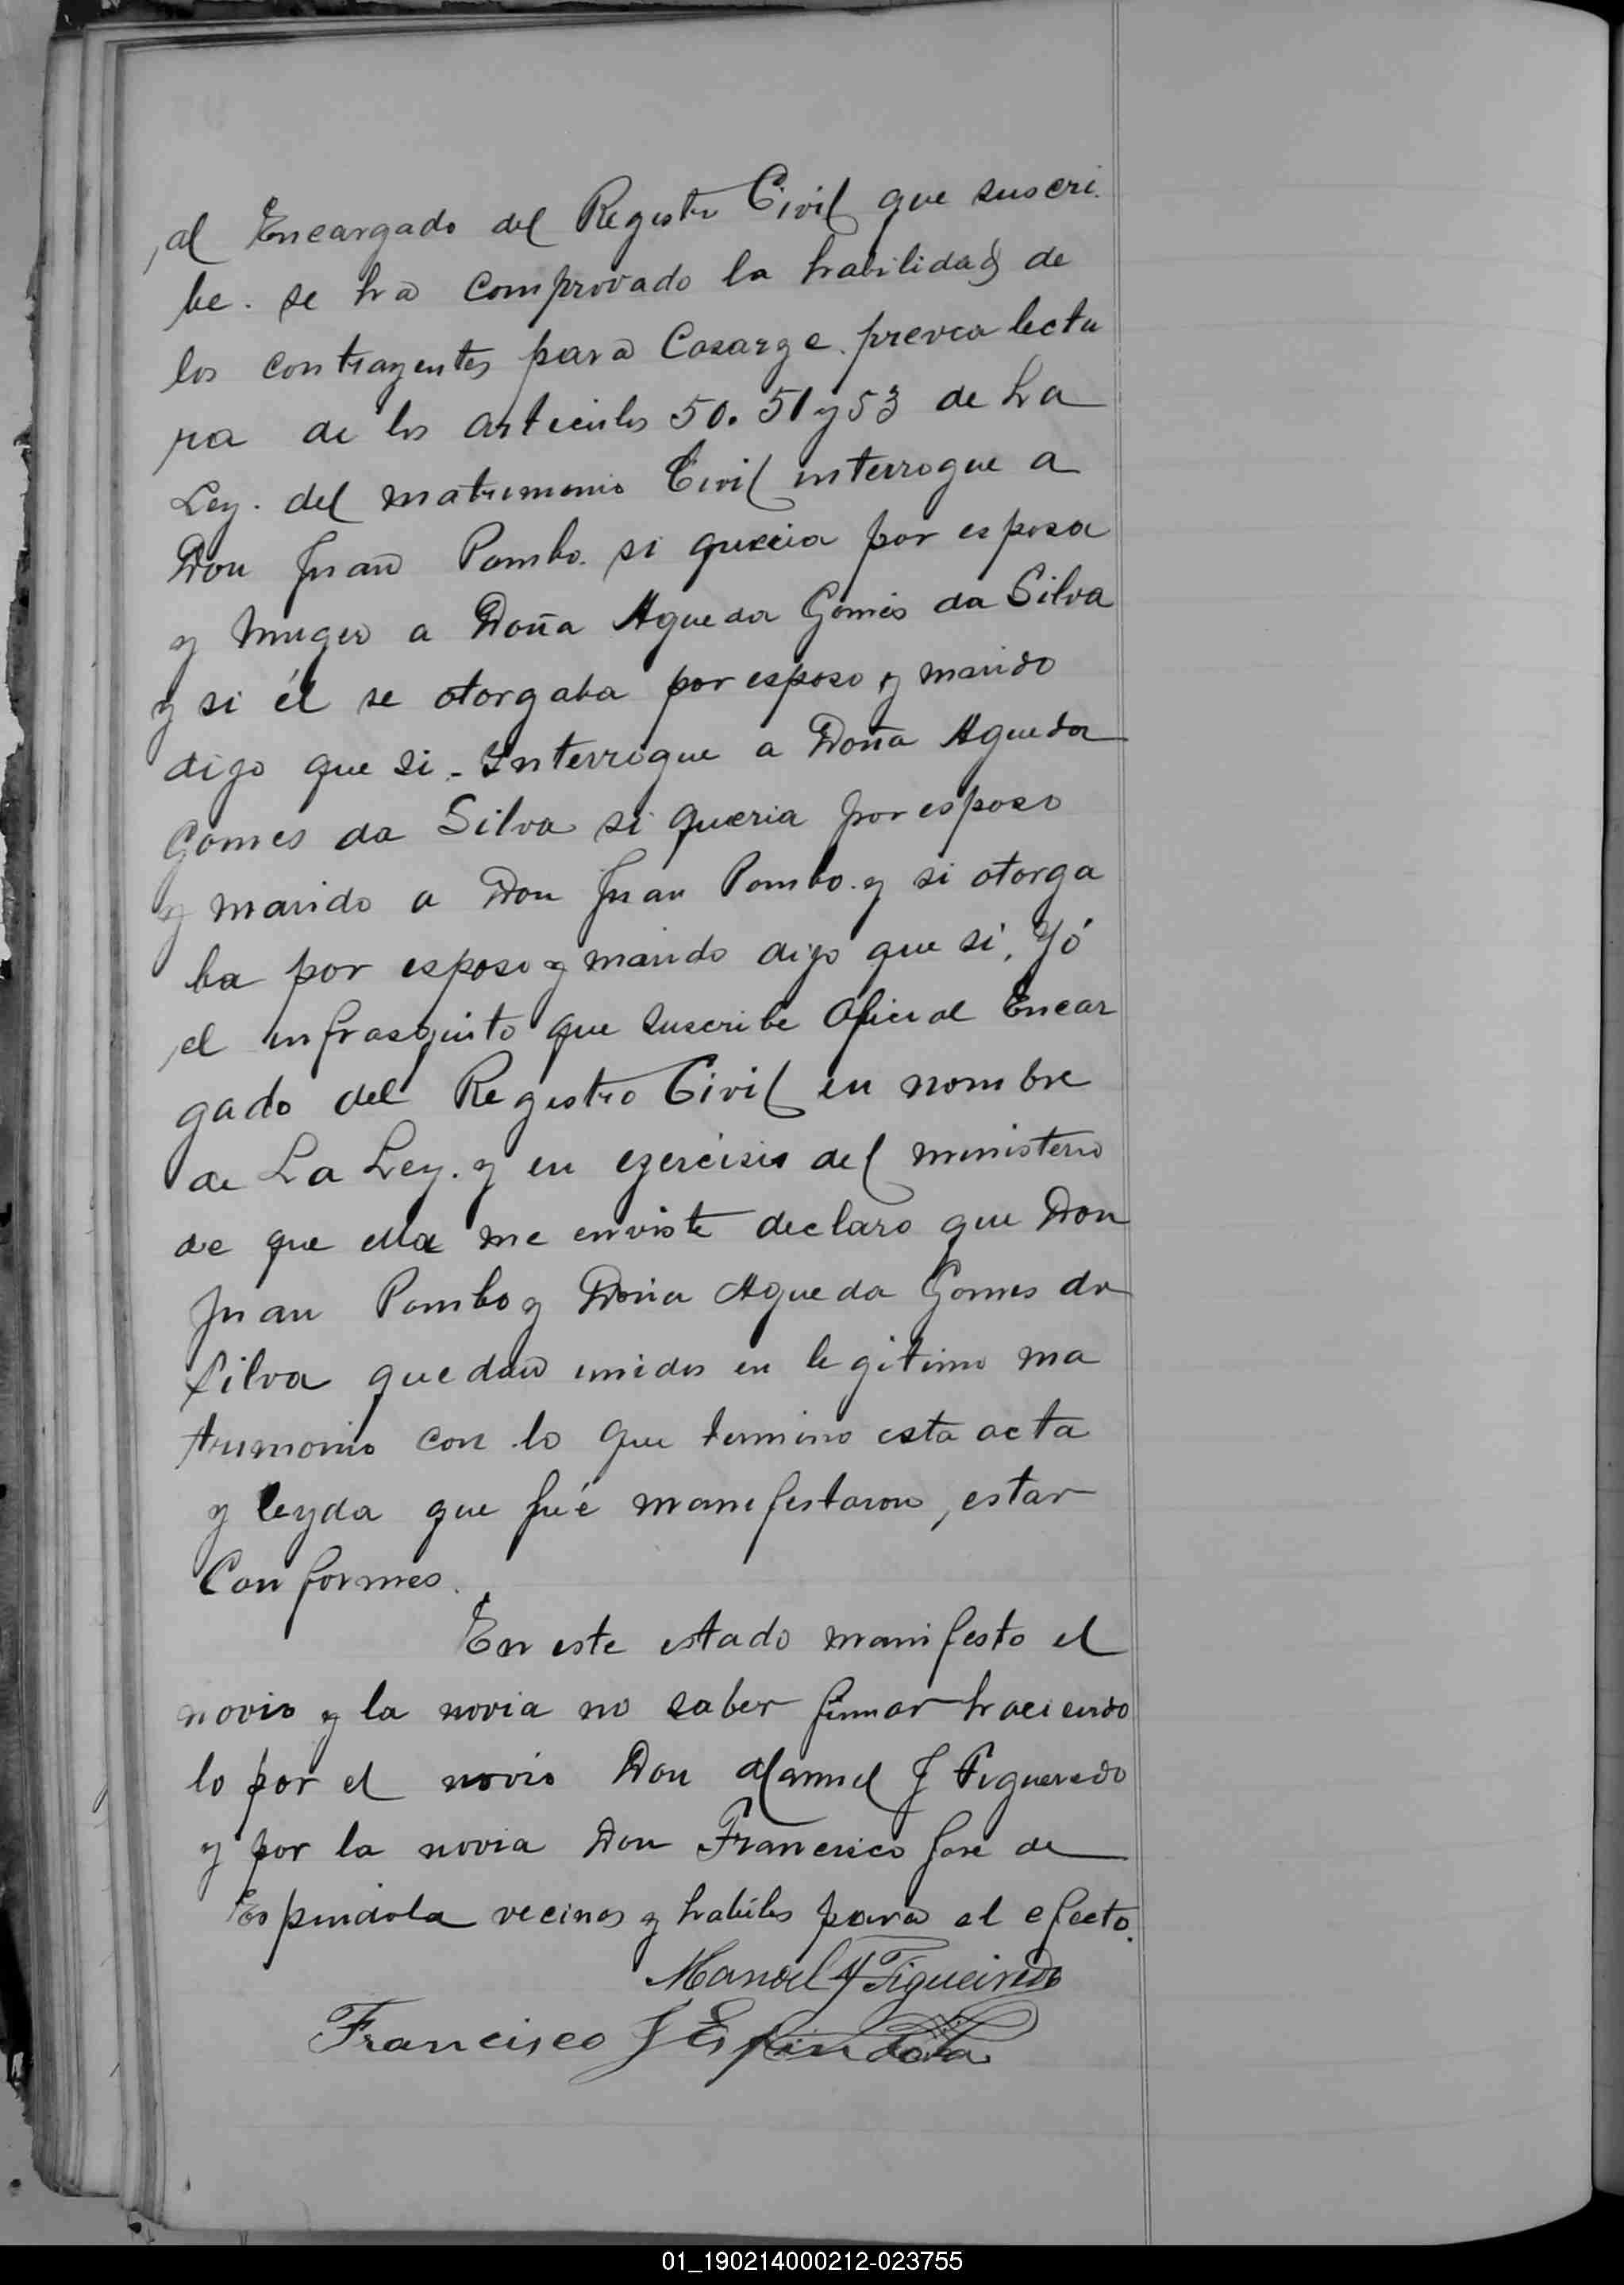 al Encargado del Registro Civil que suscri
be. se ha comprovado la habilidad de
los contrayentes para Casarge. previa lectu
ra de los articulos 50. 51 y 53 de La
Ley. del matrimonio Civil interrogue a
Don Juan Pombo. si queria por esposa
y Muger a Doña Agueda Gomes da Silva
y si él se otorgaba por esposo y marido
digo que si - Interrogue a Doña Agueda
Gomes da Silva si queria por esposo
y marido a Don Juan Pombo. y si otorga
ba por esposo y marido digo que si, Yó
el infrasquito que suscribe Oficial Encar
gado del Registro Civil en nombre
de La Ley. y en egercisio del ministerio
de que ella me enviste declaro que Don
Juan Pombo y Doña Agueda Gomes da
Silva quedan unidos en legitimo ma
trimonio con lo que termino esta acta
y leyda que fué manifestaron, estar
Conformes.
En este estado manifesto el
novio y la novia no saber firmar haciendo
lo por el novio Don Manuel J Figueredo
y por la novia Don Francisco Jose de
Espindola vecinos y habiles para el efecto.
Manoel J Figueiredo
Francisco J Espindola
01_190214000212-023755